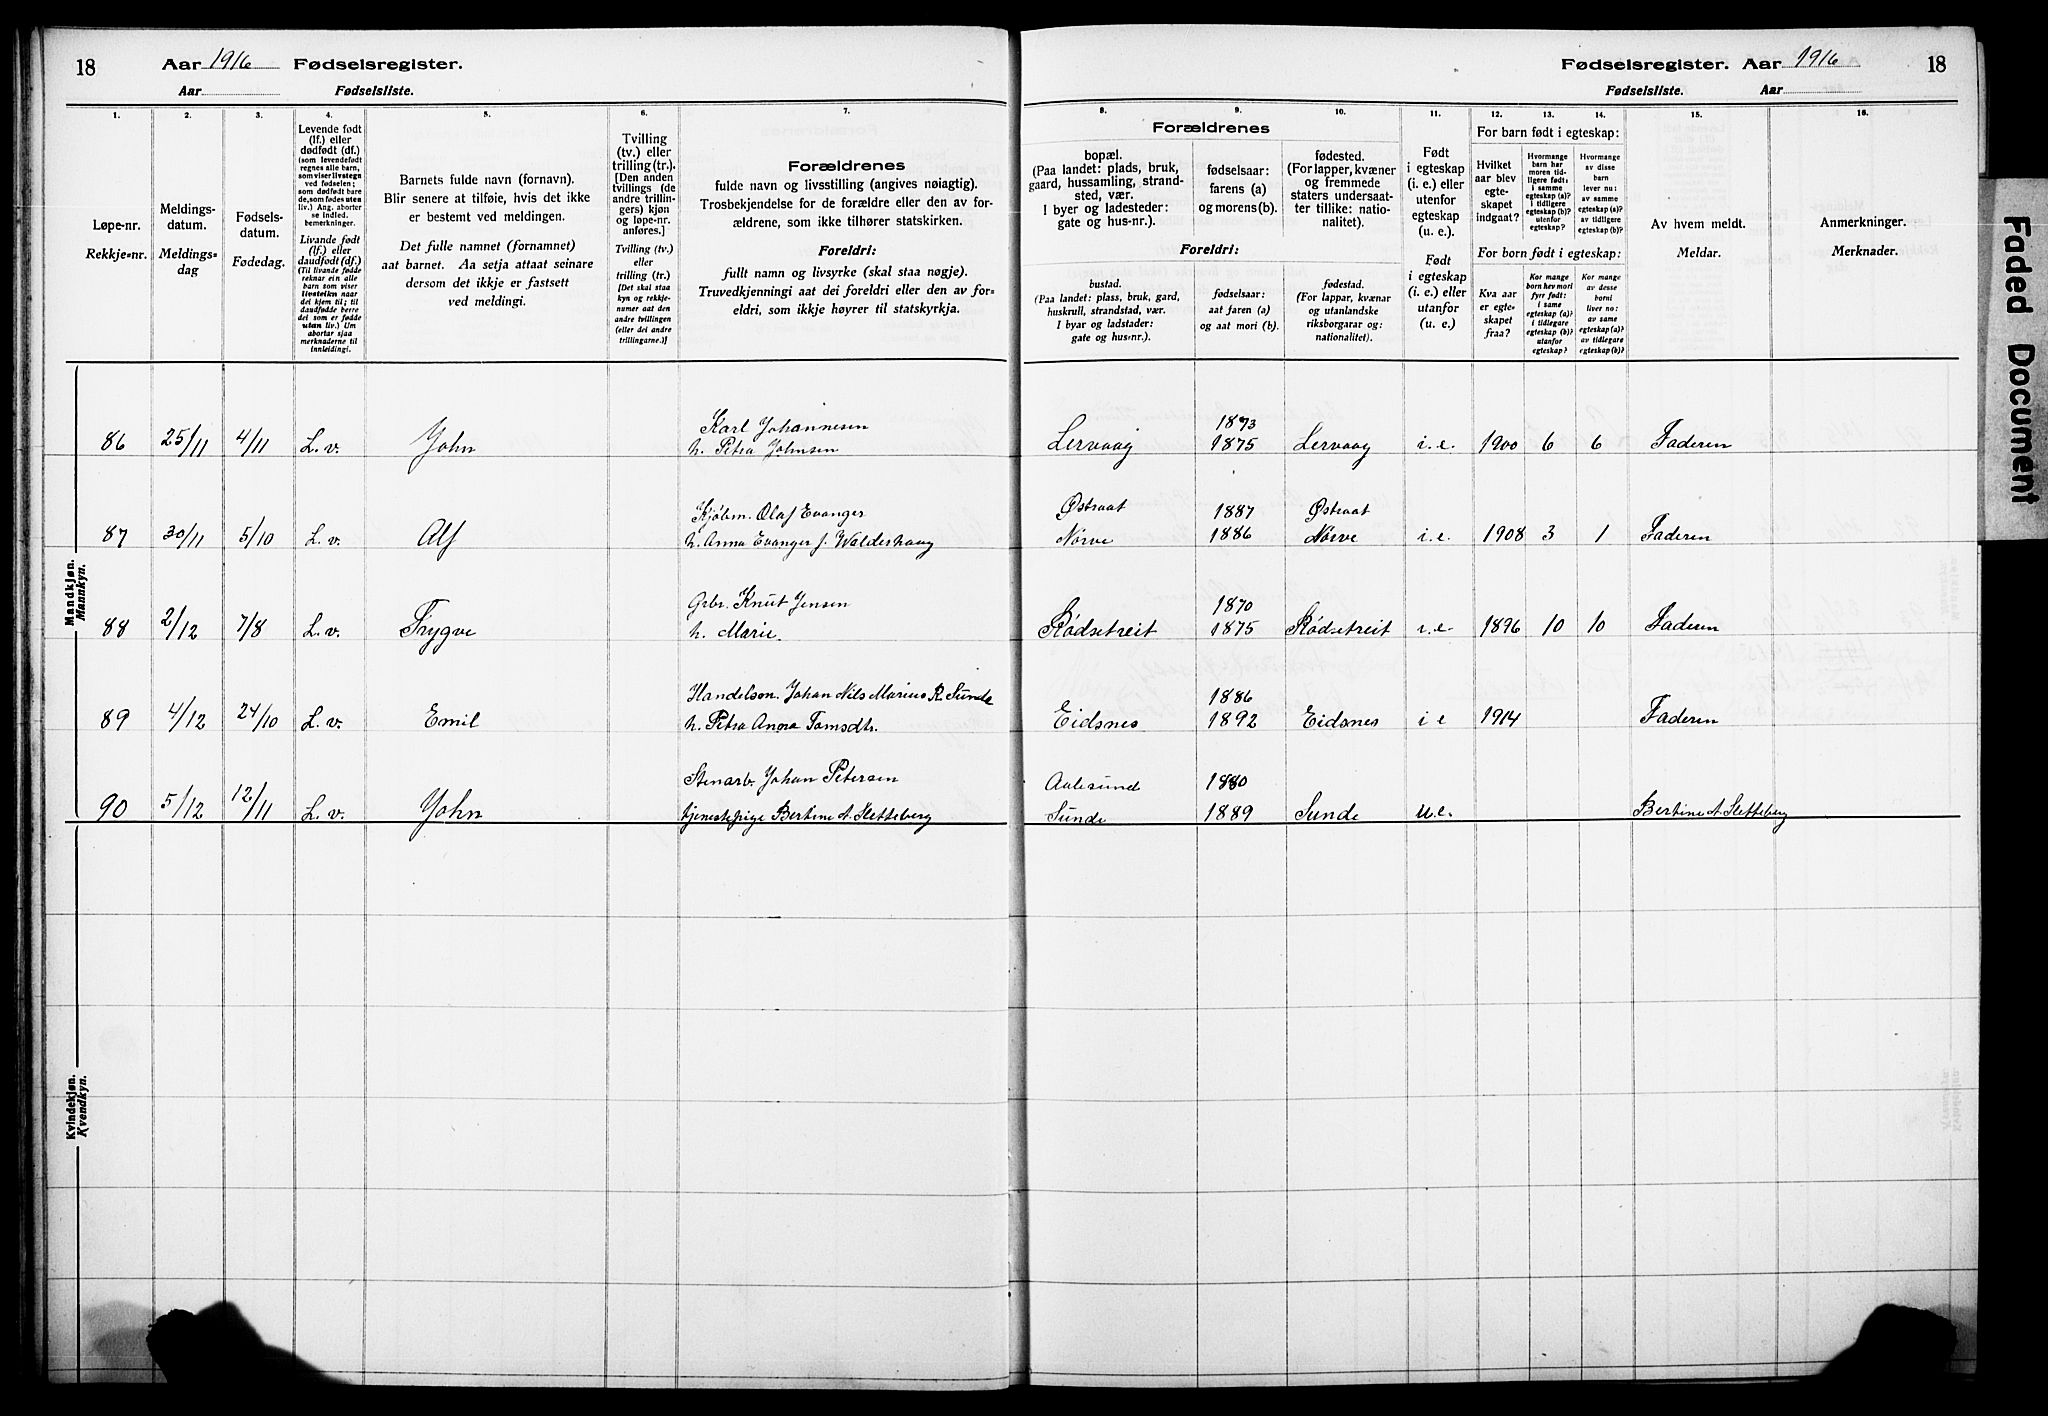 18 Aar 1916 Fødselsregister.
Aar Fødselsliste.
Fødselsregister. Aar 1916 18
Fødselsliste. Aar
1. 2. 3. 4. 5. 6. 7.
8. 9. 10. 11. 12. 13. 14. 15. 16.
Løpe-nr.
Rekkje-nr.
Meldings-
datum.
Meldings-
dag
Fødsels-
datum.
Fødedag.
Levende født
(lf.) eller
dødfødt (df.)
(som levendefødt
regnes alle barn,
som viser livstegn
ved fødselen;
som dødfødt bare
de, som fødes uten
liv.) Ang. aborter
se indled.
bemerkninger.
Livande født
(lf.) eller
daudfødt (df.)
(Til livande fødde
reknar ein alle
barn som viser
livsteikn naar
dei kjem til; til
daudfødde berre
dei som er fødde
utan liv.) Um
abortar sjaa
merknaderne til
innleidingi.
Barnets fulde navn (fornavn).
Blir senere at tilføie, hvis det ikke
er bestemt ved meldingen.
Det fulle namnet (fornamnet)
aat barnet. Aa setja attaat seinare
dersom det ikkje er fastsett
ved meldingi.
Tvilling
(tv.) eller
trilling (tr.).
[Den anden
tvillings (de
andre trillin-
gers) kjøn
og løpe-nr.
anføres.]
Tvilling (tv.)
eller
trilling (tr.)
[Det skal staa
kyn og rekkje-
numer aat den
andre tvillingen
(eller dei andre
trillingarne.)]
Forældrenes
fulde navn og livsstilling (angives nøiagtig).
Trosbekjendelse for de forældre eller den av for-
ældrene, som ikke tilhører statskirken.
Foreldri:
fullt namn og livsyrke (skal staa nøgje).
Truvedkjenningi aat dei foreldri eller den av for-
eldri, som ikkje høyrer til statskyrkja.
Forældrenes
bopæl.
(Paa landet: plads, bruk,
gaard, hussamling, strand-
sted, vær.
I byer og ladesteder:
gate og hus-nr.).
fødselsaar:
farens (a)
og morens (b).
fødested.
(For lapper, kvæner
og fremmede
staters undersaat-
ter tillike: natio-
nalitet).
Foreldri:
bustad.
(Paa landet: plass, bruk, gard,
huskrull, strandstad, vær.
I byar og ladstader:
gate og hus-nr.).
fødselsaar:
aat faren (a)
og aat mori (b).
fødestad.
(For lappar, kvænar
og utanlandske
riksborgarar og:
nationalitet).
Født
i egteskap
(i. e.) eller
utenfor
egteskap
(u. e.).
Født
i egteskap
(i. e.) eller
utanfor
(u. e.).
For barn født i egteskap:
Hvilket
aar blev
egte-
skapet
indgaat?
Hvormange
barn har
moren tid-
ligere født:
i samme
egteskap (a)?
i tidligere
egteskap (b)?
utenfor
egteskap?
Hvormange
av disse
barn
lever nu:
av samme
egteskap (a)?
av tidligere
egteskap (b)?
For born født i egteskap:
Kva aar
er egte-
skapet
fraa?
Kor mange
born hev mori
fyrr født:
i same
egteskap (a)?
i tidlegare
egteskap (b)?
utanfor
egteskap?
Kor mange
av desse
borni
liver no:
av same
egteskap (a)?
av tidlegare
egteskap (b)?
Av hvem meldt.
Meldar.
Anmerkninger.
Merknader.
Mandkjøn.
Mannkyn.
Karl Johannesen 1873
86 25/11 4/11 L. v. John h. Petra Johnsen Lervaag 1875 Lervaag i. e. 1900 6 6 Faderen
Kjøbm. Olaf Evanger Østraat 1887 Østraat
87 30/11 5/10 L. v. Alf h. Anna Evanger f. Walderhaug Nørve 1886 Nørve i. e. 1908 3 1 Faderen
Grbr. Knut Jensen 1870
88 2/12 7/8 L. v. Trygve h. Marie Rødsetreit 1875 Rødsetreit i. e. 1896 10 10 Faderen
Handelsm. Johan Nils Marius R. Sunde 1886
89 4/12 24/10 L. v. Emil h. Petra Anna Tomsdtr. Eidsnes 1892 Eidsnes i e 1914 Faderen
Stenarb. Johan Petersen Aalesund 1880
90 5/12 12/11 L. v. John tjenestepige Bertine A. Sletteberg Sunde 1889 Sunde u. e. Bertine A. Sletteberg
Kvindekjøn.
Kvendkyn.
Faded Document